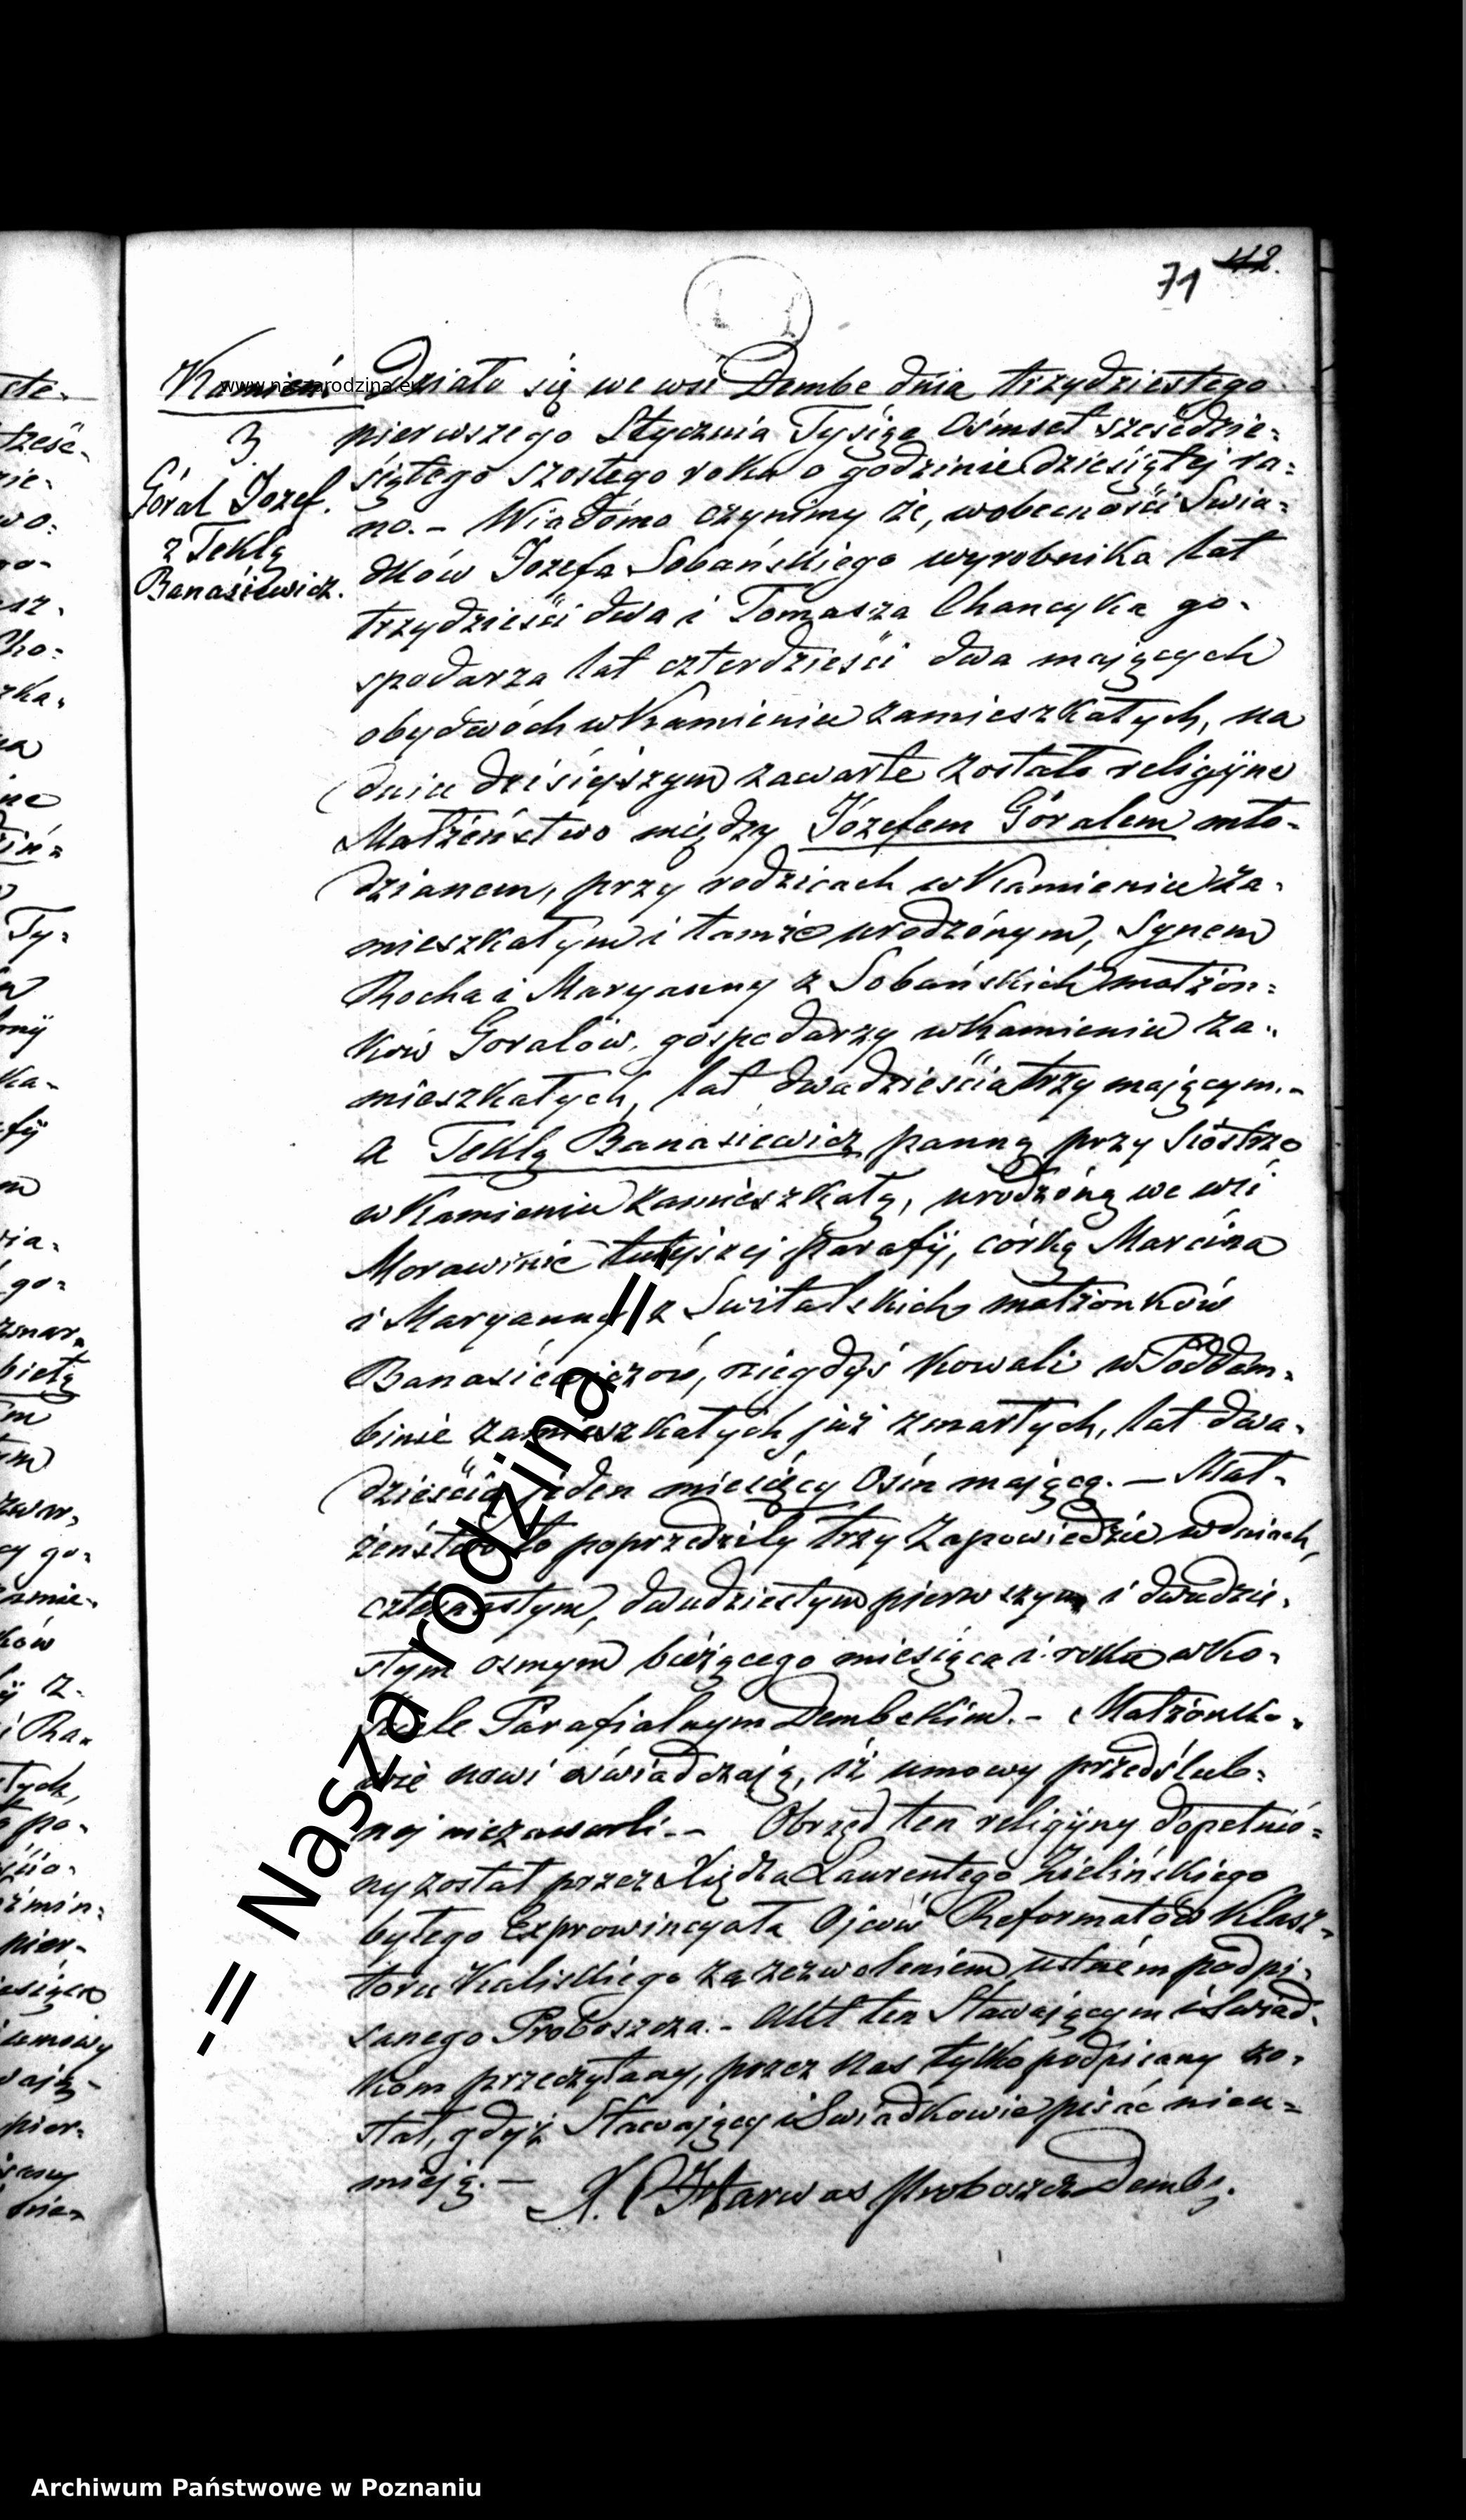 71 42.
Kamień
3
Góral Jozef.
z Teklą
Banasiewicz.
Działo się we wsi Dembe dnia trzydziestego
pierwszego Stycznia Tysiąc Osimset sześcdzie=
siątego szostego roku o godzinie dziesiątej ra=
no. – Wiadomo czynimy że, wobecności Swia=
dków Jozefa Sobańskiego wyrobnika lat
trzydzieści dwa i Tomasza Chancyka go-
spodarza lat czterdzieści dwa mających
obydwóch w Kamieniu zamieszkałych, na
dniu dzisiejszym zawarte zostało religijne
Małżeństwo między Józefem Góralem mło-
dzianem, przy rodzicach w Kamieniu za-
mieszkałym i tamże urodzónym, Synem
Rocha i Maryanny z Sobańskich małżon=
ków Goralów, gospodarzy w Kamieniu za-
mieszkałych, lat dwadzieścia trzy mającym. –
a Teklą Banasiewicz panną przy Siostrze
w Kamieniu zamieszkałą, urodzóną we wsi
Morawinie tutejszej Parafij, córką Marcina
i Maryanny z Switalskich małżonków
Banasiewiczow, niegdyś Kowali w Poddem-
binie zamieszkałych już zmarłych, lat dwa-
dzieścia jeden miesięcy Osm mającą. – Mał-
żeństwo to poprzedziły trzy Zapowiedzie w dniach,
czternastym, dwudziestym pierwszym i dwudzie-
stym osmym bieżącego miesiąca i roku w Ko-
sciele Parafialnym Dembskim. – Małżonko-
wie nowi oświadczają, iż umowy przedślub=
nej niezawarli. – Obrzęd ten religijny dopełnió=
ny został przez Xiędza Laurentego Zielińskiego
byłego Exprowincyała Ojców Reformatów Klasz-
toru Kaliskiego za zezwoleniem ustném podpi-
sanego Proboszcza. – Akt ten Stawającym i Swiad-
kom przeczytany, przez Nas tylko podpisany zo-
stał, gdyż Stawający i Swiadkowie pisać nieu=
mieją. –
X. Harwas Proboszcz Dembs.
www.naszarodzina.eu
-= Nasza rodzina ="
Archiwum Państwowe w Poznaniu